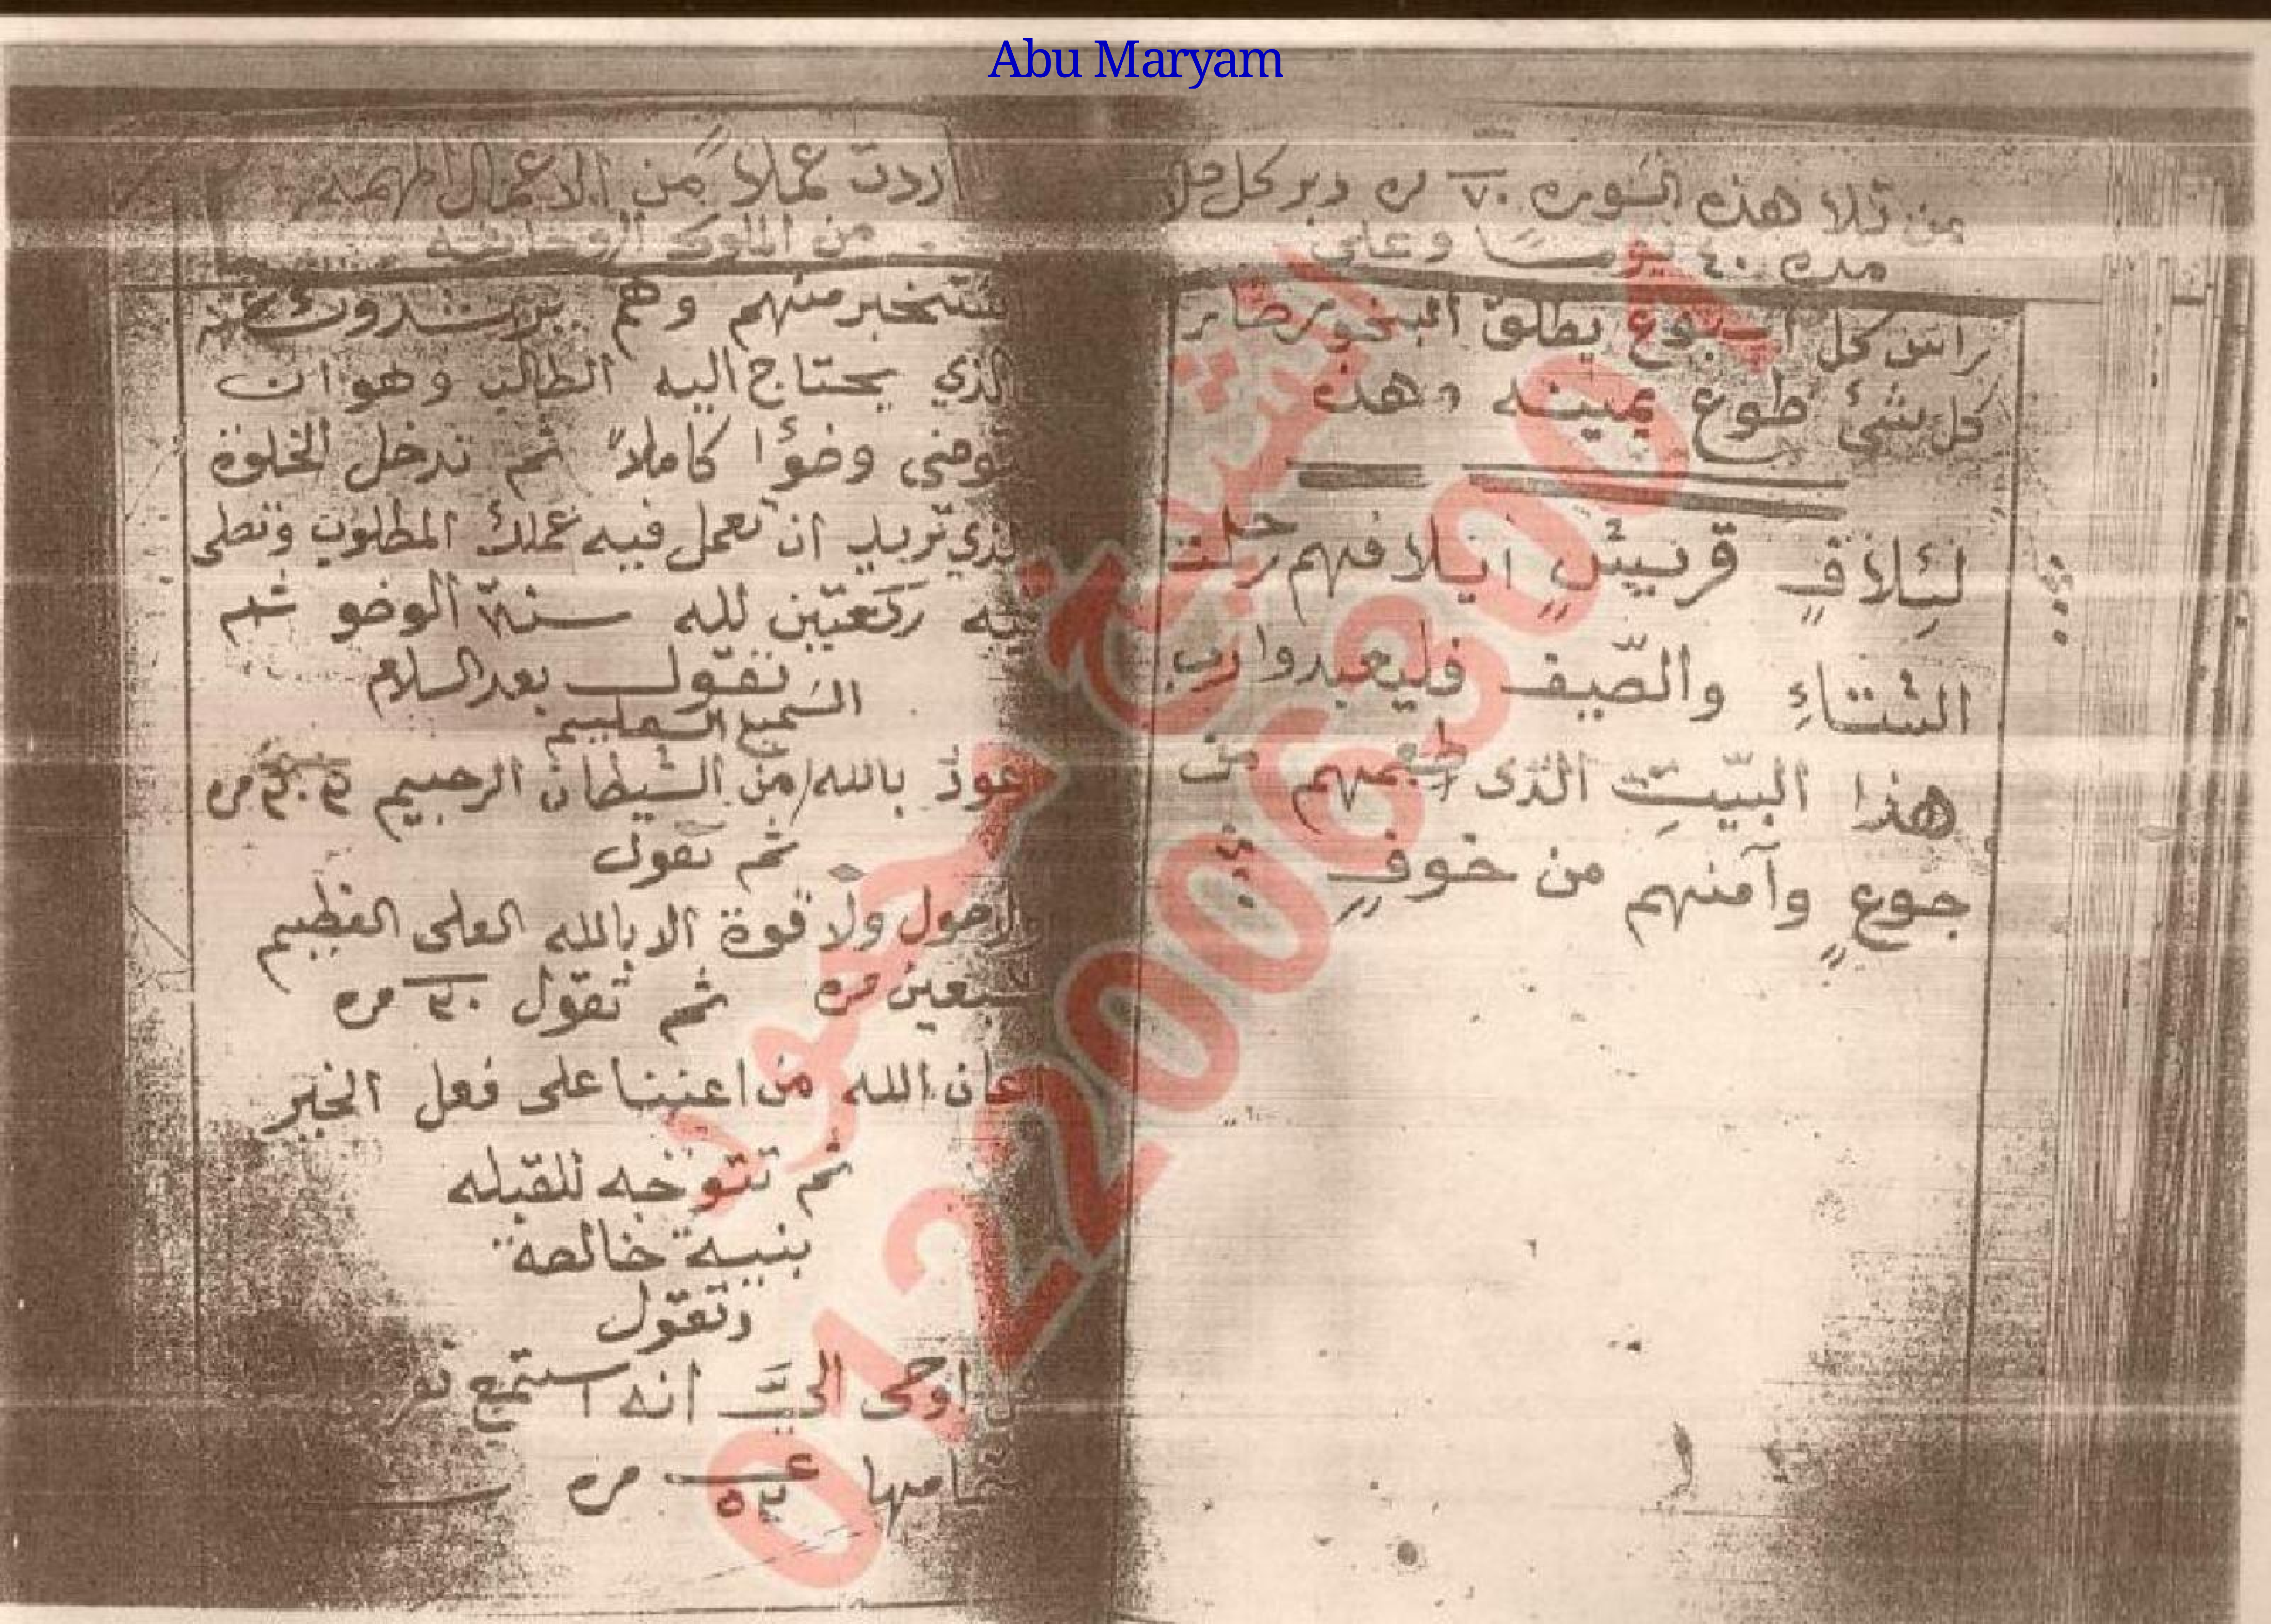 Abu Maryam
من تلا هذه السوره ٧٠ مره دبر كل صلا
مده ٤٠ يومـًا وعلى
راس كل اسبوع يطلق البخور صار
كل شئ طوع يمينه وهذه
لئِلافِ قريشٍ ايلافهم رحلت
الشتاءِ والصّيف فليعبدوا رب
هذا البيّتِ الذى اطعمهم من
جوعٍ وآمنهم من خوفٍ
اردت عملاً من الاعمال المهمه
من الملوك الروحانيه
ستخبر منهم وهم يرشدوك عن
الذي يحتاج اليه الطالب وهو ان
توضى وضؤا كاملاً ثم تدخل الخلوة
لذي تريد ان تعمل فيه عملك المطلوب وتصلى
فيه ركعتين لله سنة الوضو ثم
تقول بعد السلام
السميع العليم
عوذ بالله من الشيطان الرجيم مره
ثم تقول
ولاحول ولا قوة الا بالله العلى العظيم
سبعين مره ثم تقول ٣٠ مره
عان الله من اعننا على فعل الخير
ثم تتوجه للقبله
بنية خالصة
وتقول
اوحى اليَّ انه استمع نفر
امها مره
الشيخة جمهورا
0122006300